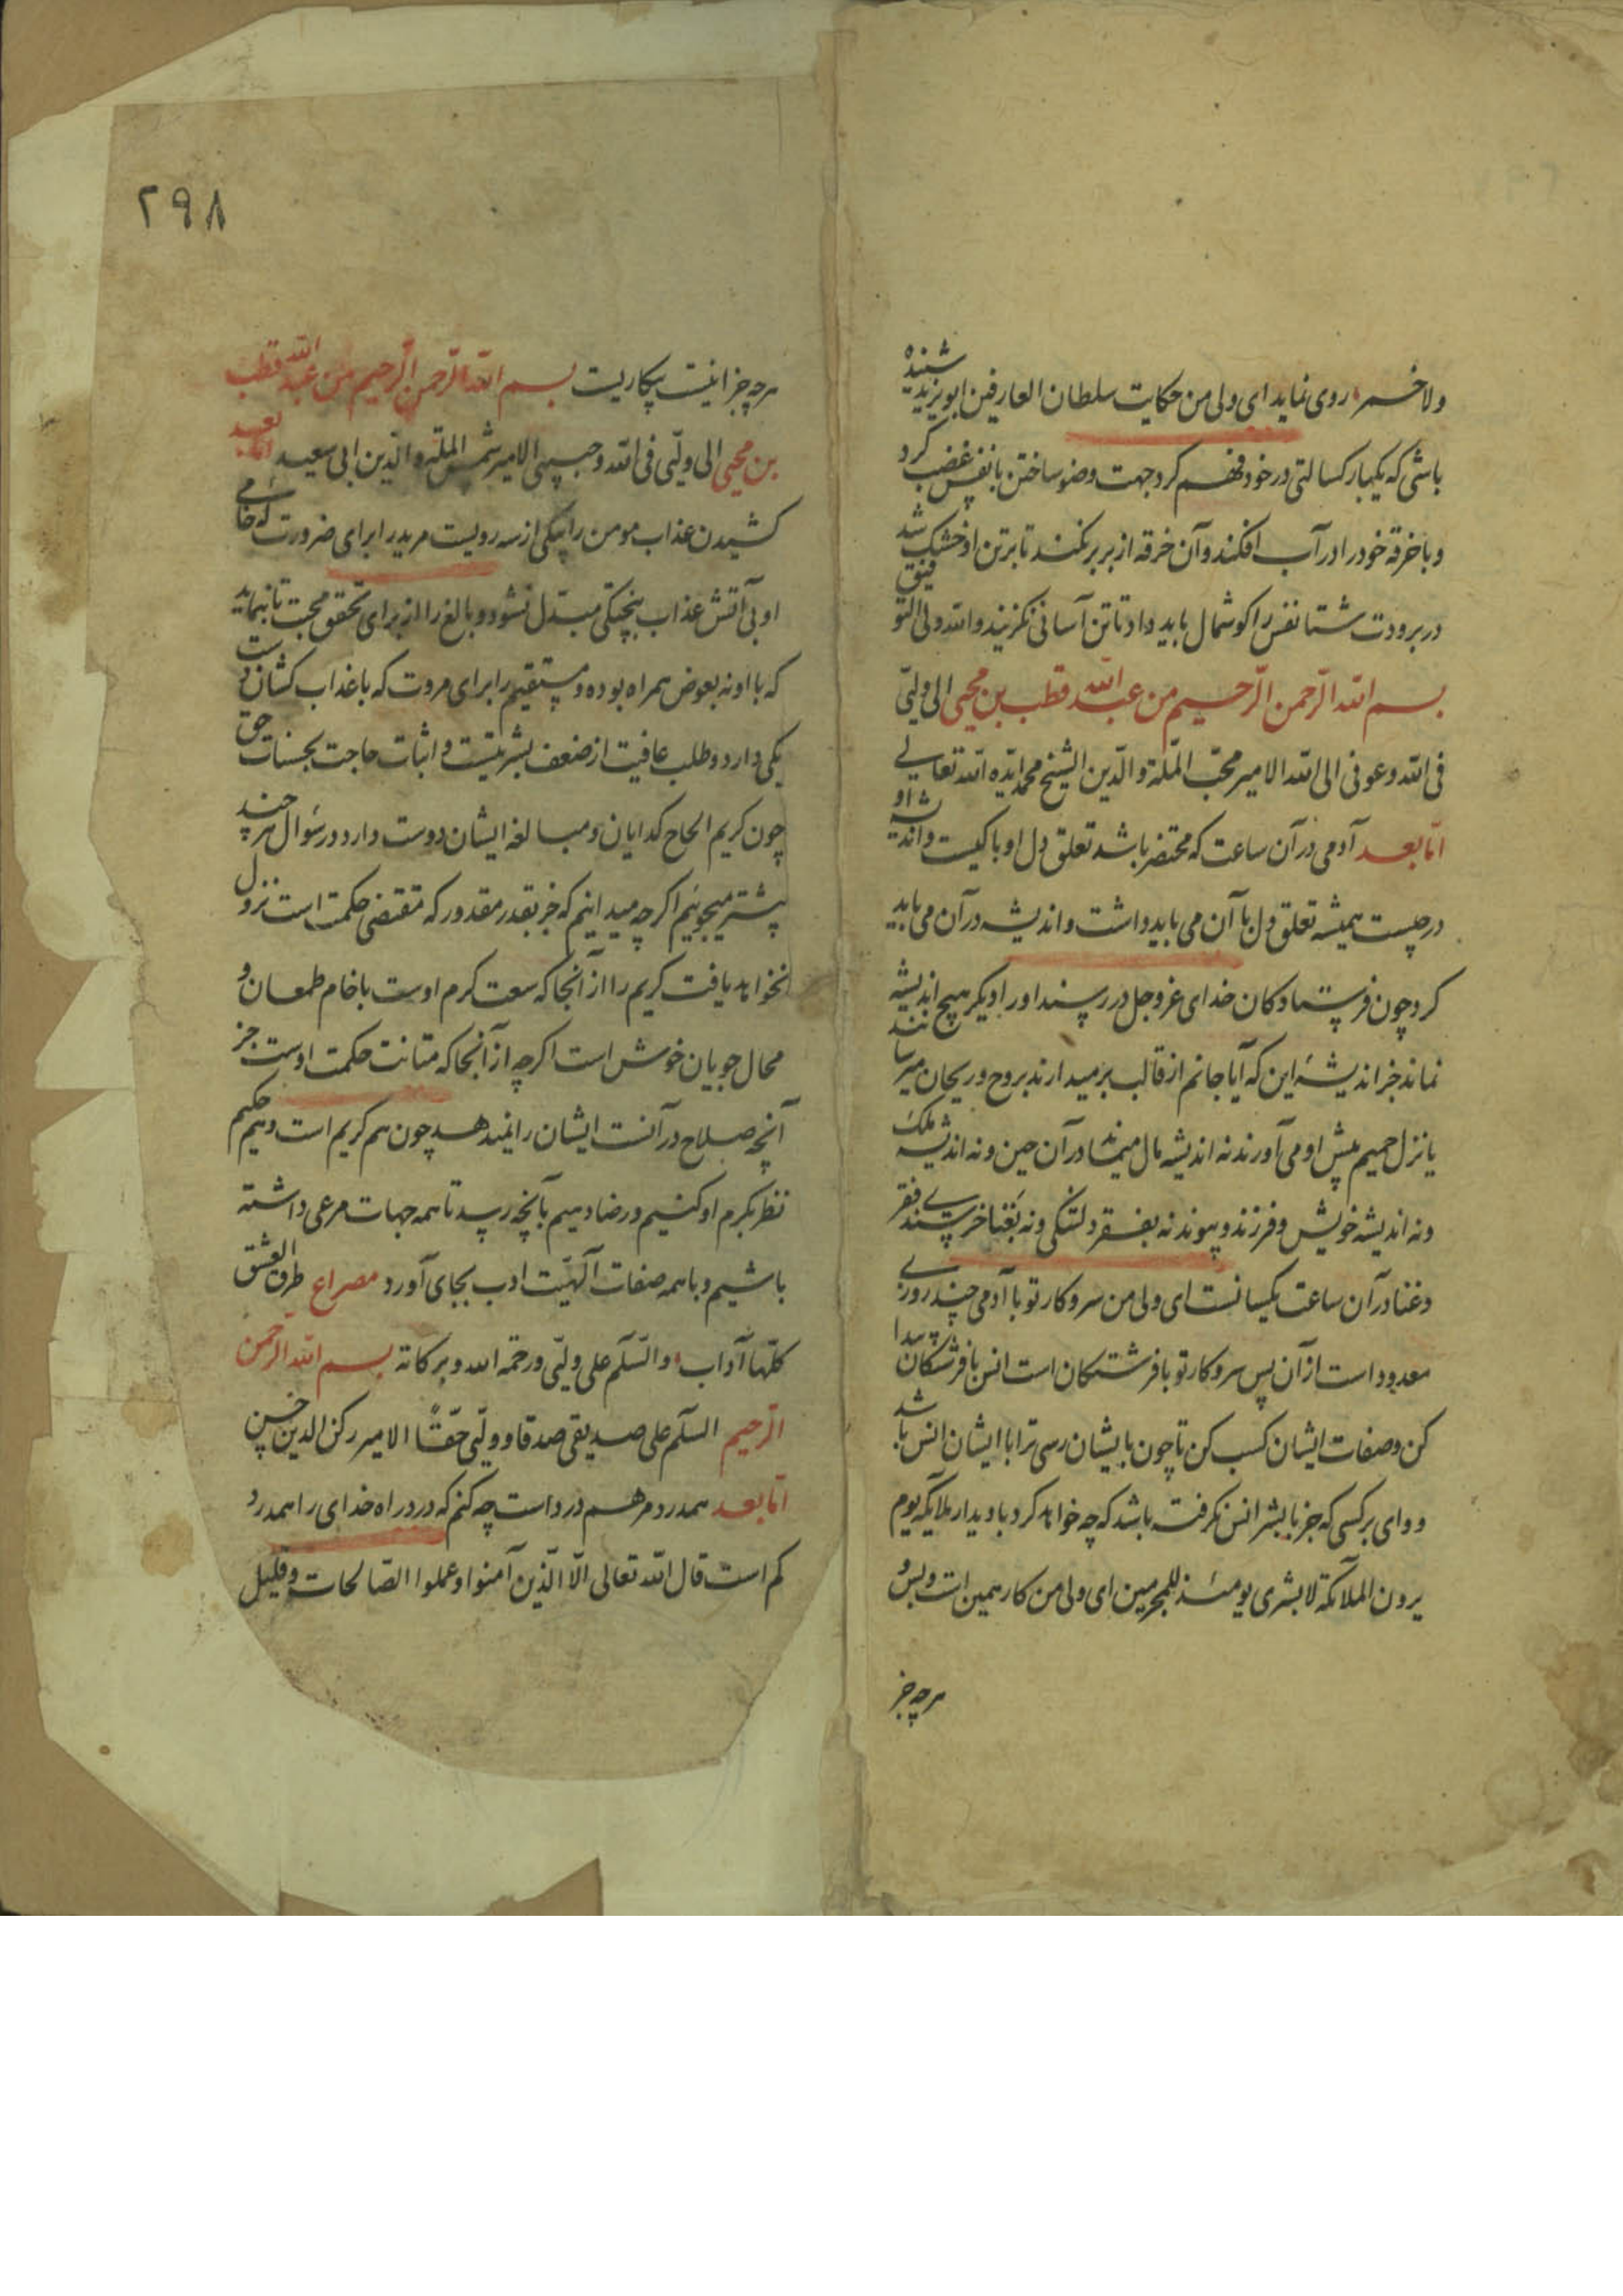 ولا خسر روی نماید ای ولی من حکایت سلطان العارفین ابو یزید شنیده
باشی که یکبار کسالتی در خود فهم کرد جهت وضو ساختن بانفس غضب کرد
و با خرقه خود را در آب افکند و آن خرقه از بر بر نکند تا بر تن او خشک شد
در برودت شتا نفس را کوشمال باید داد تا تن آسانی نکزیند والله ولی التوفیق
بسم الله الرحمن الرحیم من عبد الله قطب بن محیی الی ولیّی
فی الله و عونی الی الله الامیر محب الملة والدین الشیخ محمد ایّده الله تعالی
امّا بعد آدمی در آن ساعت که محتضر باشد تعلق دل او با کیست و اندیشه او
در چیست همیشه تعلق دل با آن می باید داشت و اندیشه در آن می باید
کرد چون فرستادکان خدای عزوجل در رسند او را دیکر هیچ اندیشه
نماند جز اندیشهٔ این که آیا جانم از قالب بر میدارند بروح و ریحان میرسانند
یا نزل حمیم پیش او می آورند نه اندیشه مال میماند در آن حین و نه اندیشه ملک
و نه اندیشه خویش و فرزند و پیوند نه بفقر دلتنکی و نه بغنا خرسندی فقر
و غنا در آن ساعت یکسانست ای ولی من سر و کار تو با آدمی چند روزی
معدود است از آن پس سر و کار تو با فرشتکان است انس با فرشتکان پیدا
کن و صفات ایشان کسب کن تا چون بایشان رسی ترا با ایشان انس باشد
و وای بر کسی که جز با بشر انس نکرفته باشد که چه خواهد کرد با دیدار ملایکه یوم
یرون الملائکة لا بشری یومئذ للمجرمین ای ولی من کار همین است و بس و
هر چه جز
۲۹۸
هر چه جز اینست بیکاریست بسم الله الرحمن الرحیم من عبد الله قطب
بن محیی الی ولیّی فی الله و حبیبی الامیر شمس الملة والدین ابی سعید امّا بعد
کشیدن عذاب مومن را بیکی از سه رویست مرید را برای ضرورت که خامی
او بی آتش عذاب بپختکی مبتدل نشود و بالغ را از برای تحقق محبت تا بنماید
که با او نه بعوض همراه بوده و مستقیم را برای مروت که با عذاب کشان دست
یکی دارد و طلب عافیت از ضعف بشریتست و اثبات حاجت بحسنات حق
چون کریم الحاح کدایان و مبالغه ایشان دوست دارد در سؤال هر چند
بیشتر میجوئیم اکرچه میدانیم که جز بقدر مقدور که مقتضی حکمت است نزول
نخواهد یافت کریم را از آنجا که سعت کرم اوست با خام طمعان و
محال جویان خوش است اکرچه از آنجا که متانت حکمت اوست جز
آنچه صلاح در آنست ایشان را نمیدهد چون هم کریم است و هم حکیم
نظر بکرم او کنیم و رضا دهیم بآنچه رسد تا همه جهات مرعی داشته
باشیم و با همه صفات آلهیّت ادب بجای آورد مصراع طرق العشق
کلّها آداب والسّلم علی ولیّی ورحمة الله وبرکاته بسم الله الرحمن
الرّحیم السّلم علی صدیقی صدقا و ولیّی حقّاً الامیر رکن الدین حسن
امّا بعد همدرد مرهم درد است چه کنم که درد راه خدای را همدرد
کم است قال الله تعالی الّا الّذین آمنوا و عملوا الصّالحات و قلیل